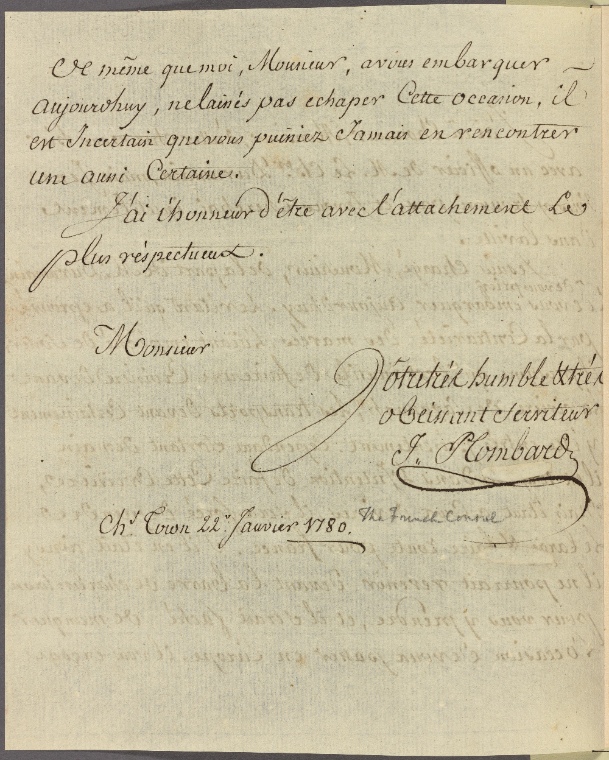 De même que moi, Monsieur, a vous embarquer
aujourdhuy, ne laissés pas echaper Cette occasion, il
est Incertain que vous puissiez Jamais en rencontrer
une aussi Certaine.
J'ai l'honneur d'être avec l'attachement Le
plus réspectueux.
Monsieur
Vôtre trés humble & trés
obeissant serviteur
J. Plombard
Chs. Town 22. Janvier 1780.
The French Consul